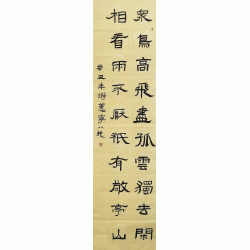 衆鳥高飛盡孤雲獨去閑
相看兩不厭祇有敬亭山